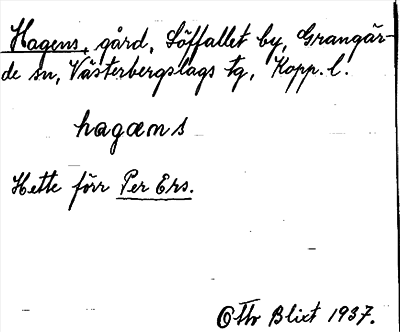 Hagens, gård, Löffallet by, Grangär-
de sn, Västerbergslags tg, Kopp. l.
hagæns
Hette förr Per Ers.
Otto Blixt 1937.